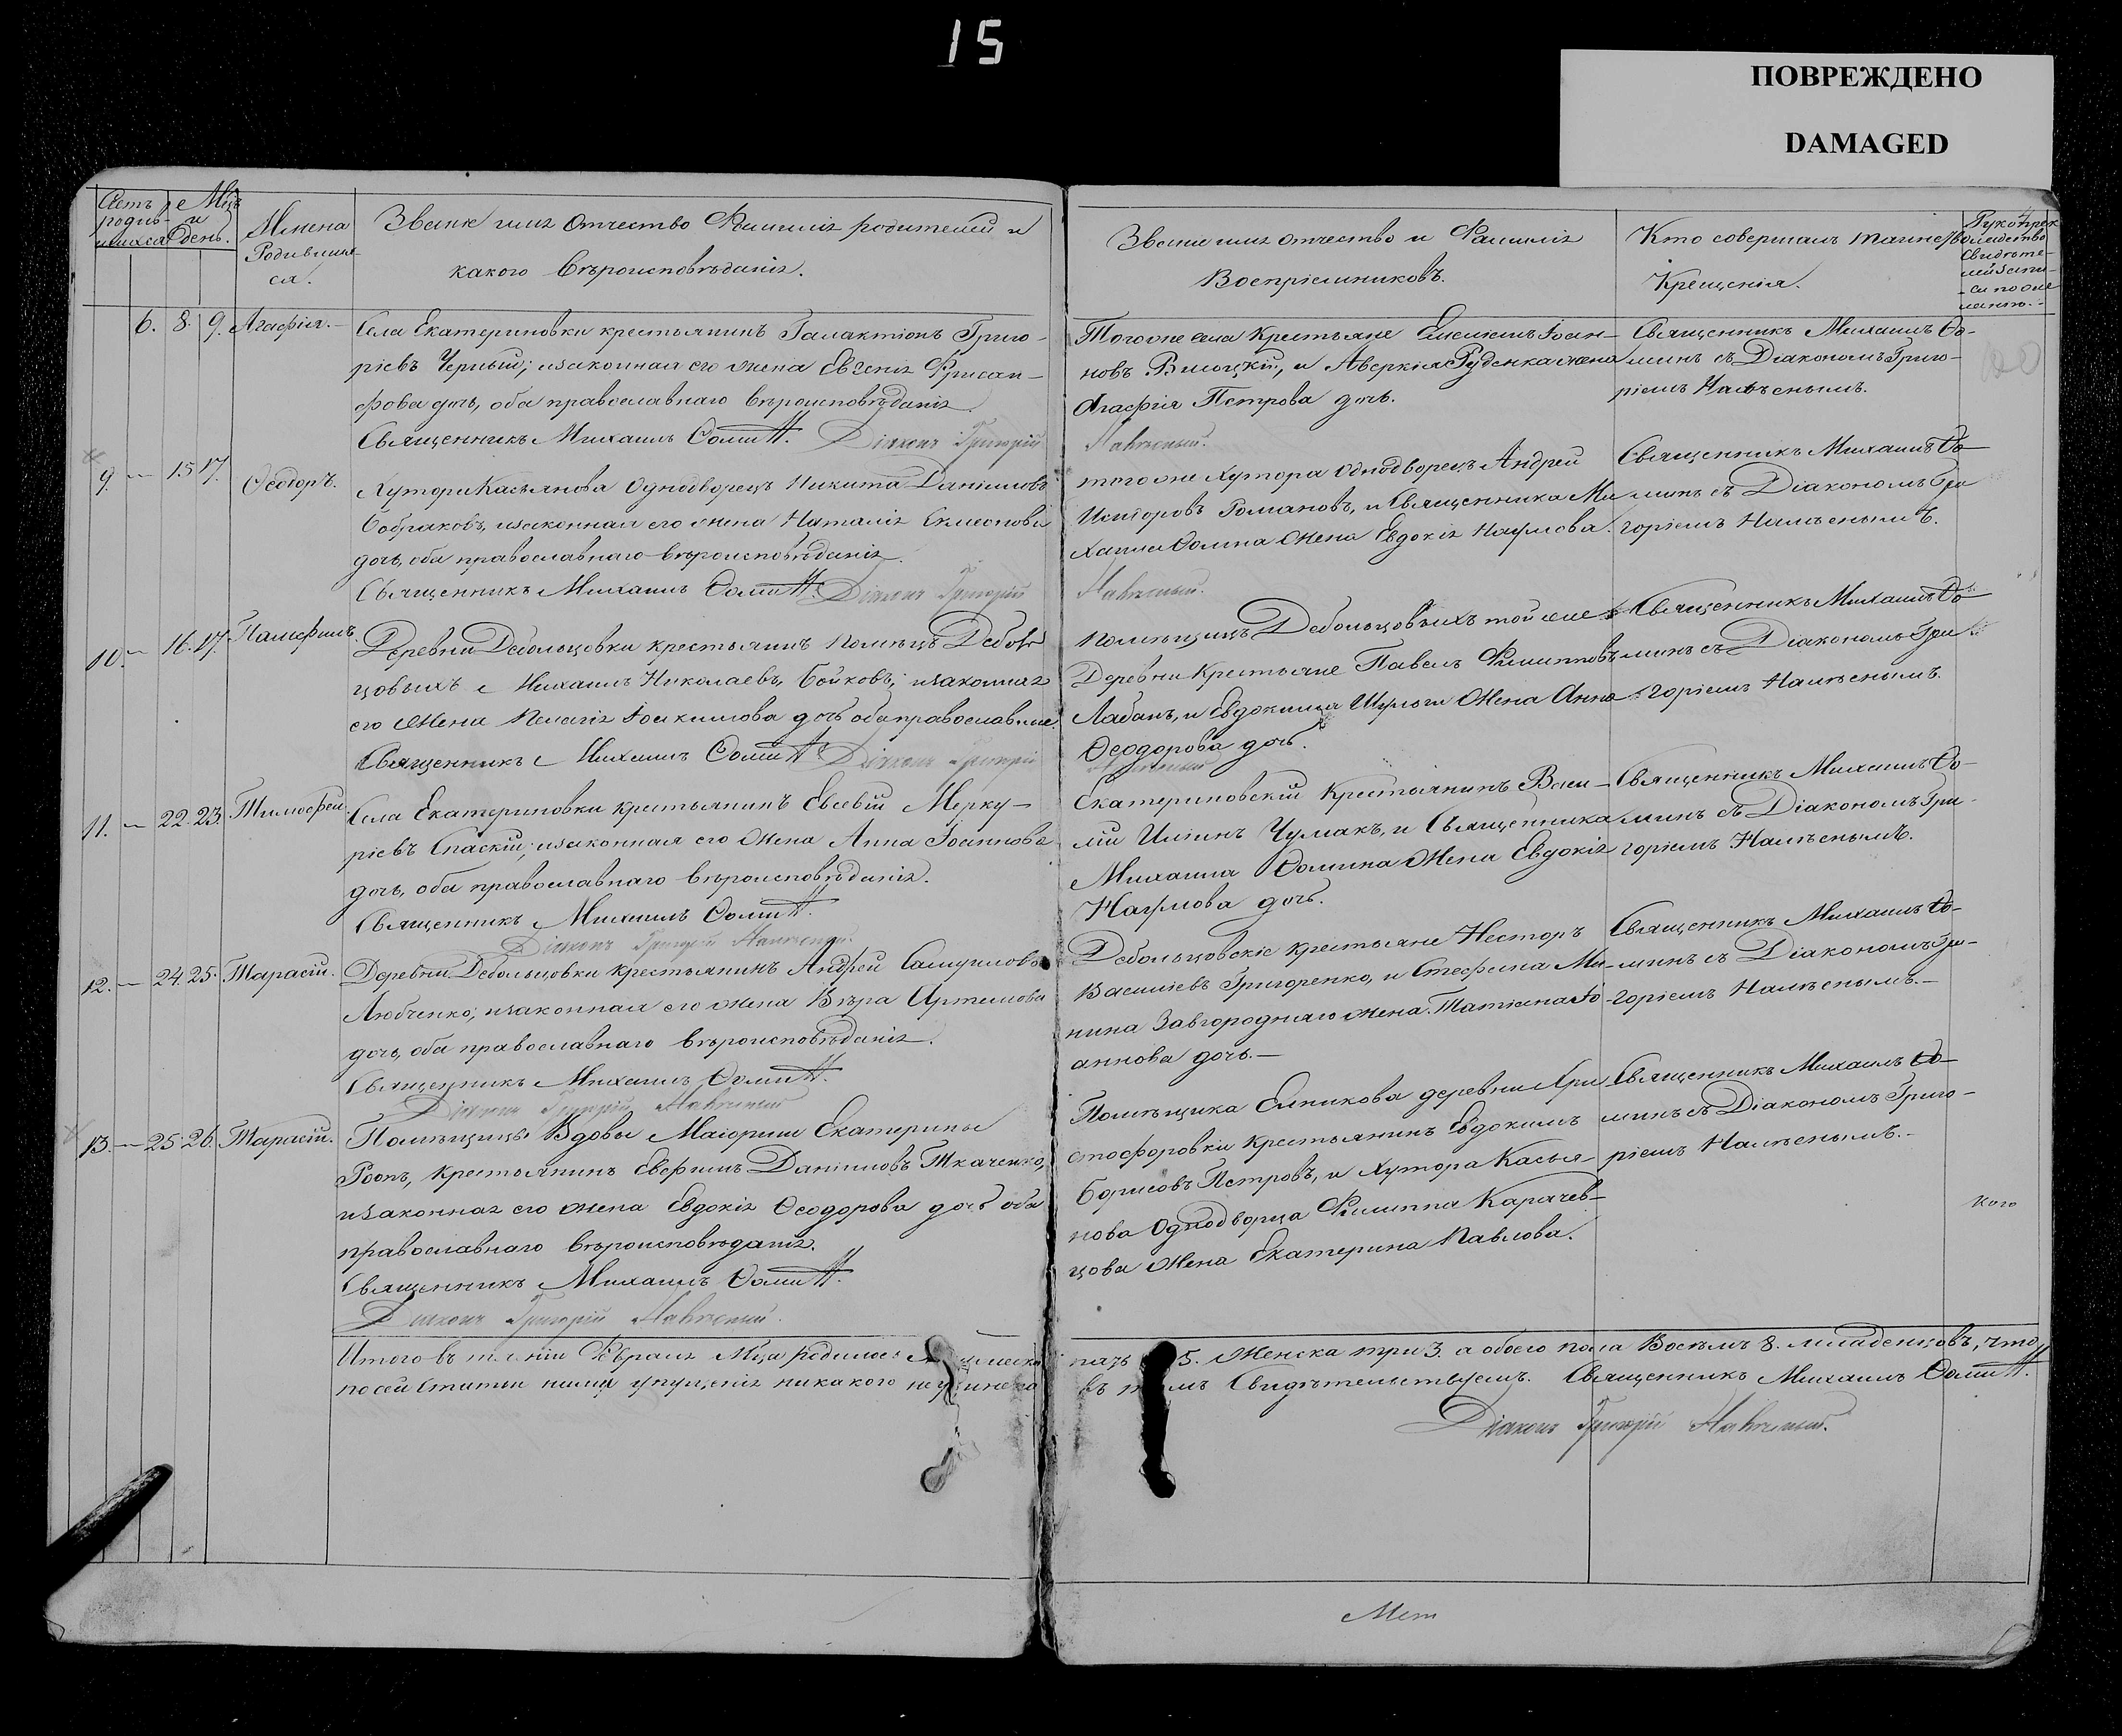 15
ПОВРЕЖДЕНО
DAMAGED
Счетъ родив-шихся
Мцъ и день.
Имена Родивших-ся.
Званіе имя отчество Фамилія родителей и
какого вѣроисповѣданія.
Званіе имя отчество и Фамилія
Воспріемниковъ.
Кто совершалъ таинство
Крещенія.
6. 8. 9. Агафія.
Села Екатериновки крестьянинъ Галактіонъ Григо-
ріевъ Черный; изаконная его жена Евгенія Хрисан-
фова дочь, оба православнаго вѣроисповѣданія
Священникъ Михаилъ Ѳомин. Діаконъ Григорій
Тогоже села Крестьяне Емеліанъ Іоан-
новъ Высоцкій, и Аверкія Руденка жена
Агафія Петрова дочь.
Священникъ Михаилъ Ѳо-
минъ съ Діакономъ Григо-
ріемъ
9. 15 17. Ѳеодоръ.
Хутора Касьянова Однодворецъ Никита Даніиловъ
Бобраковъ, изаконная его жена Наталія Симеонова
дочь, оба православнаго вѣроисповѣданія.
Священникъ Михаилъ Ѳомин. Діаконъ Григорій
тогоже Хутора Однодворецъ Андрей
Романовъ, и Священника Ми
хаила Ѳомина жена Евдокія Наумова.
Священникъ Михаилъ Ѳо-
минъ съ Діакономъ Гри
горіемъ
10. 16. 17. Памфилъ.
Деревни Дебольцовки крестьянинъ помѣщ. Деболь
цовыхъ Михаилъ Николаевъ Бойковъ; изаконная
его жена Пелагія Іоакимова дочь оба православные.
Священникъ Михаилъ Ѳомин Діаконъ Григорій
помѣщицъ Дебольцовыхъ той же
Деревни Крестьяне Павелъ Филипповъ
Лабанъ, и Евдокима Шулоги жена Анна
Ѳеодорова дочь.
Священникъ Михаилъ Ѳо-
минъ съ Діакономъ Гри
горіемъ
11. 22. 23. Тимофей.
Села Екатериновки крестьянинъ Евсевій Мерку-
ріевъ Спаскій, изаконная его жена Анна Іоаннова
дочь, оба православнаго вѣроисповѣданія.
Священникъ Михаилъ Ѳомин.
Діаконъ Григорій
Екатериновскій Крестьянинъ Васи-
лій Ильинъ Чумакъ, и Священника
Михаила Ѳомина жена Евдокія
Наумова дочь.
Священникъ Михаилъ Ѳо-
минъ съ Діакономъ Гри-
горіемъ
12. 24. 25. Тарасій.
Деревни Дебольцовки крестьянинъ Андрей Самуиловъ
Любченко; изаконная его жена Вѣра Артемова
дочь, оба православнаго вѣроисповѣданія.
Священникъ Михаилъ Ѳомин.
Діаконъ Григорій
Дебольцовскіе крестьяне Несторъ
Василіевъ Григоренко, и Стефана Ми-
нина Завгородняго жена Татіана Іо-
аннова дочь.
Священникъ Михаилъ Ѳо-
минъ съ Діакономъ Гри-
горіемъ
13. 25. 26. Тарасій.
Помѣщицы Вдовы Маіорши Екатерины
Роопъ, крестьянинъ Евфимъ Даніиловъ Ткаченко,
изаконная его жена Евдокія Ѳеодорова дочь оба
православнаго вѣроисповѣданія.
Священникъ Михаилъ Ѳомин.
Діаконъ Григорій
Помѣщика деревни Хри
стофоровки крестьянинъ Евдокимъ
Борисовъ Петровъ, и Хутора Касья-
нова Однодворца Филиппа Карачев-
цова жена Екатерина Павлова.
Священникъ Михаилъ Ѳо-
минъ съ Діакономъ Григо-
ріемъ
кого
Итого въ теченіи Февраля Мца родилось 5. женска три 3. а обоего пола Восьмъ 8. младенцовъ, что
по сей статьи никакого Свидѣтельствуемъ. Священникъ Михаилъ Ѳомин.
Діаконъ Григорій
Мет